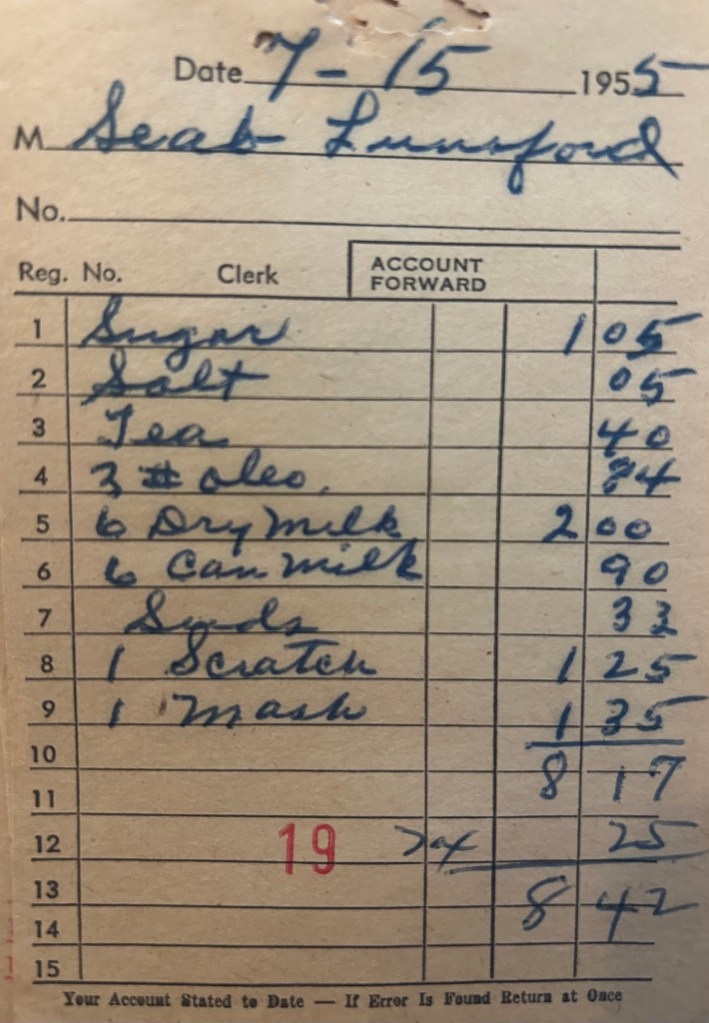 Date 7-15 1955
M Seab Lunsford
No.
Reg. No. Clerk ACCOUNT FORWARD
1 Sugar 1 05
2 Salt 05
3 Tea 40
4 3 # oleo. 84
5 6 Dry Milk 2 00
6 6 Can Milk 90
7 Suds 33
8 1 Scratch 1 25
9 1 Mash 1 35
10
11 8 17
12 19 25
13 8 42
14
15
Your Account Stated to Date — If Error Is Found Return at Once